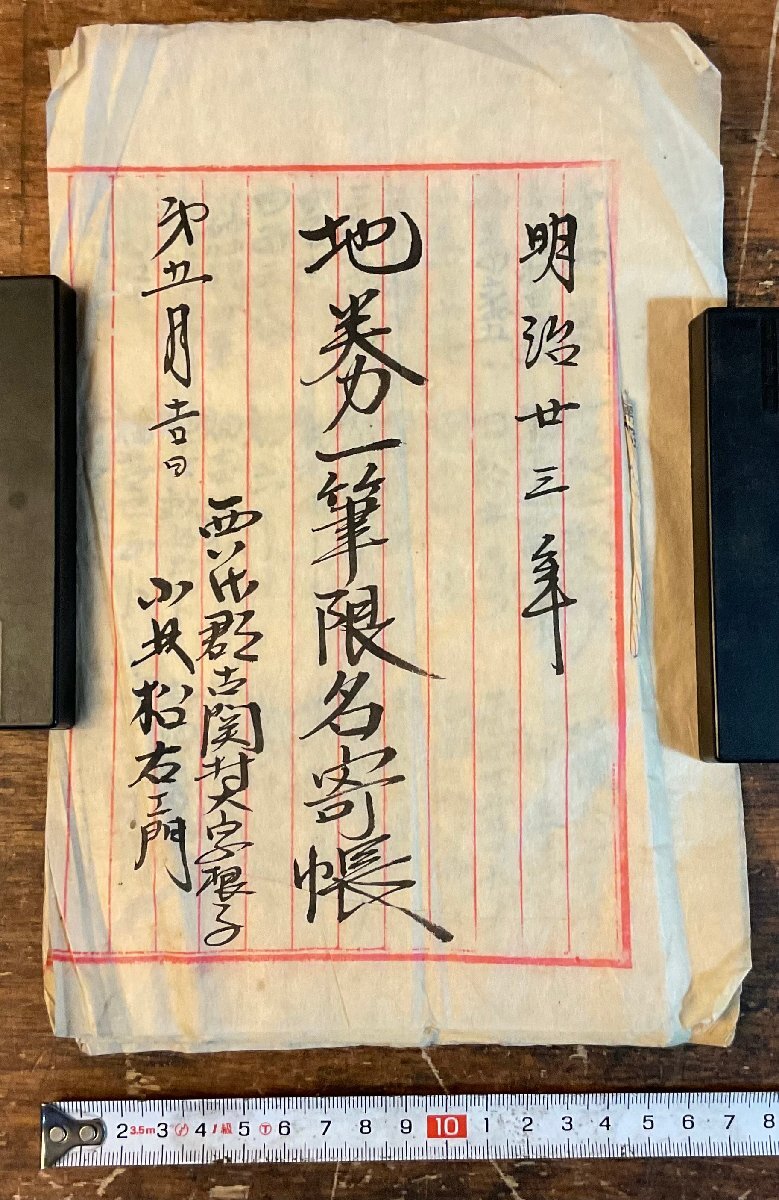 明治廿三年
地券一筆限名寄帳
第五月吉日
西八代郡古関村大字根子
小林松右エ門
2 3.5m 3 4 JIS 1級 5 6 7 8 9 10 1 2 3 4 5 6 7 8